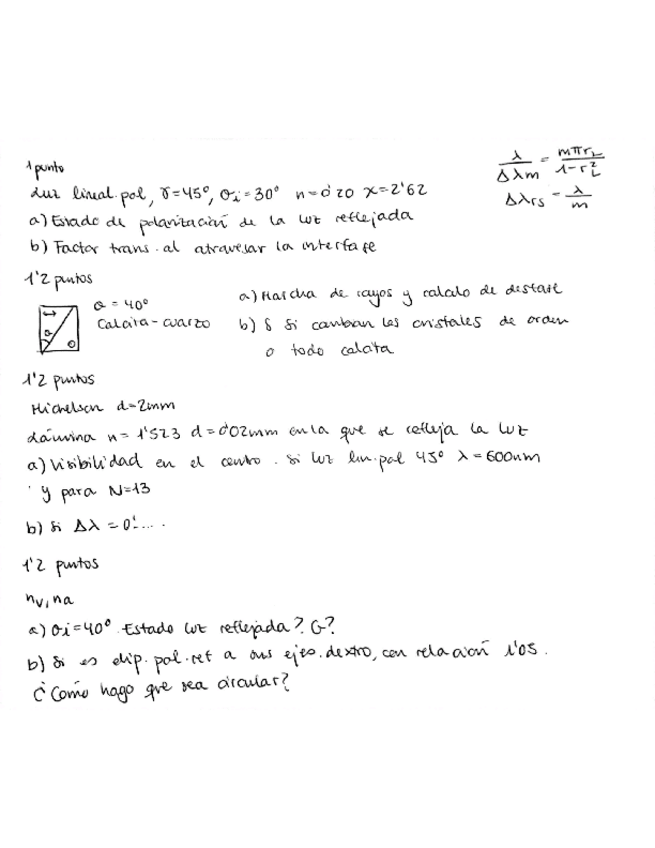 1 punto
Luz lineal. pol, γ=45°, θi=30° n=0'20 x=2'62
a) Estado de polarización de la luz reflejada
b) Factor trans. al atravesar la interfase
λ/Δλm = mπr_L/1-r²_L
Δλrs = λ/m
1'2 puntos
a = 40°
Calcita-cuarzo
a) Marcha de rayos y calculo de desfase
b) δ si cambian los cristales de orden
o todo calcita
1'2 puntos
Michelson d=2mm
Lámina n=1'523 d=0'02mm en la que se refleja la luz
a) Visibilidad en el centro. si luz lin.pol 45° λ=600nm
y para N=13
b) Si Δλ = 0'....
1'2 puntos
nv, na
a) θi=40° Estado luz reflejada? G?
b) Si es elip. pol. ref a sus ejes. dextro, con relación 1'05.
¿Como hago que sea circular?